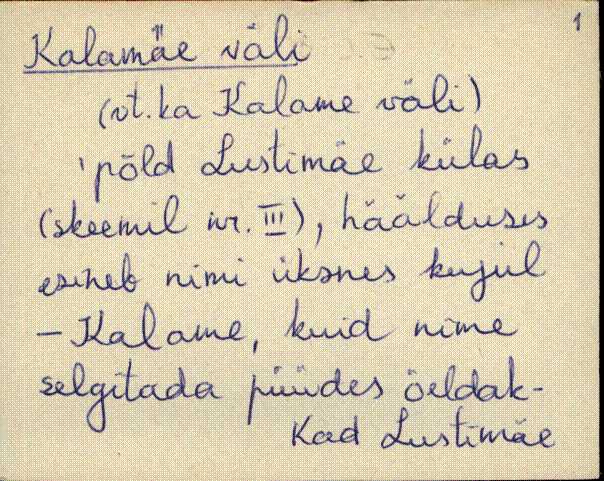 1
Kalamäe väli
(vt. ka Kalame väli)
'põld Lustimäe külas
(skeemil nr. III), häälduses
esineb nimi üksnes kujul
– Kalame, kuid nime
selgitada püüdes öeldak-
Kad Lustimäe